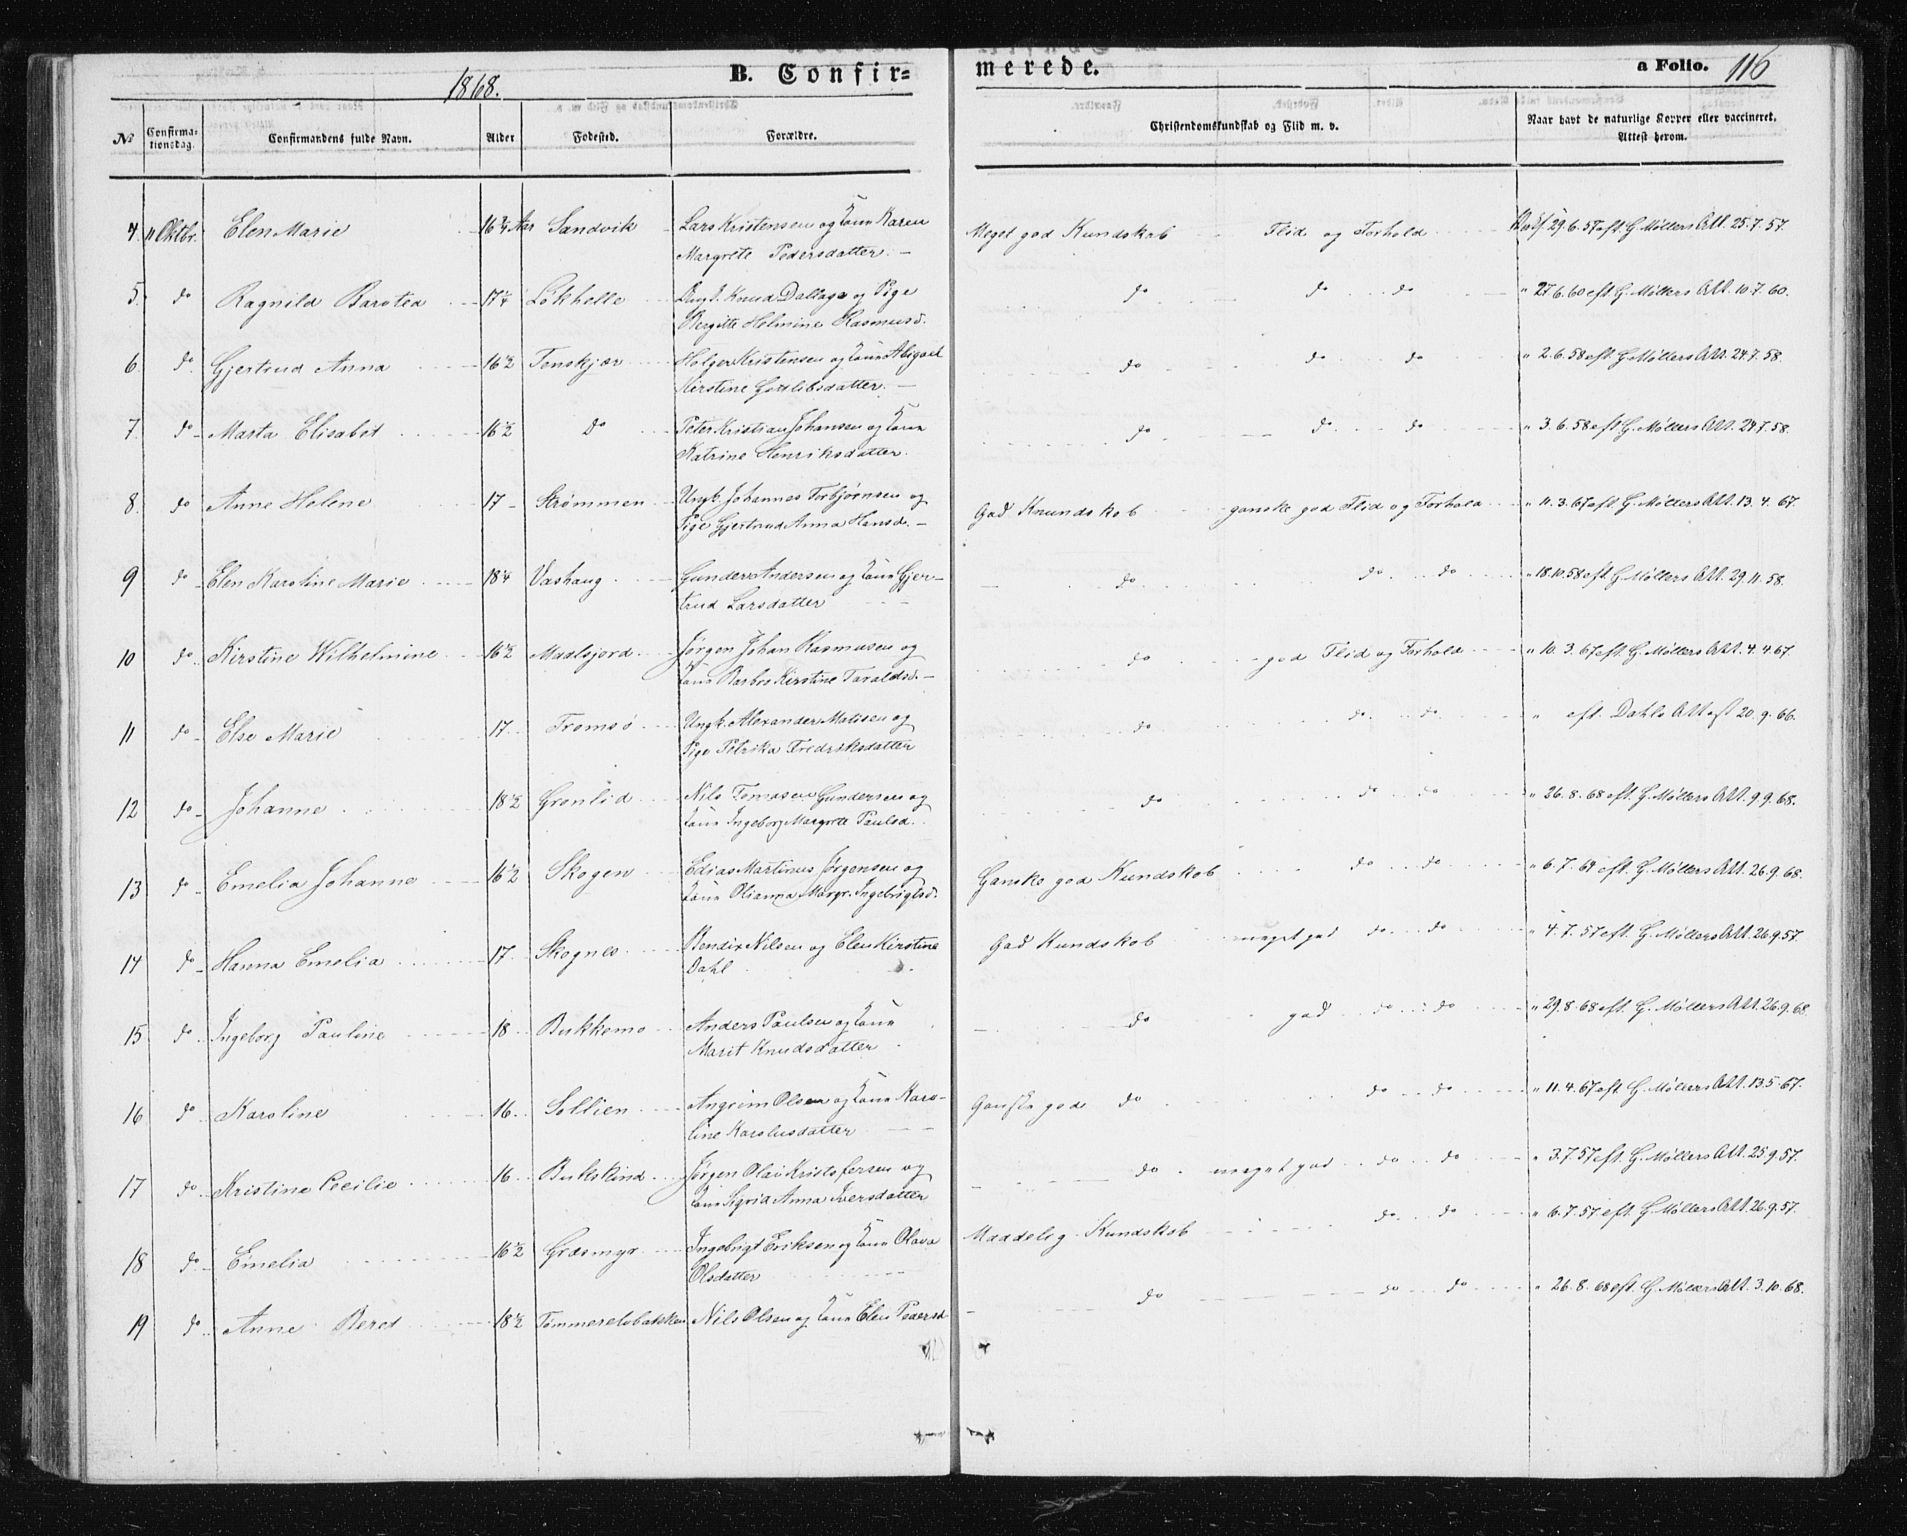 1868.
B. Confir=
merede.
a Folio. 116
№ Confirma-tionsdag. Confirmandens fulde Navn. Alder Fodested. Forældre. Christendomskundskab og Flid m. v. Naar havt de naturlige Kopper eller vaccineret. Attest herom.
4. 11 Oktbr. Elen Marie 16¾ Aar Sandvik Lars Kristensen og Karen Meget god Kundskab Flid og Forhold 29.6.57 eft. G. Møllers Att. 25.7.57.
Margrete Pedersdatter.
5. do Ragnild 17¼ Løkhelle Knud og Pige do do do " 27.6.60 eft. G. Møllers Att. 10.7.60.
Bergitte Helmine Rasmusd.
6. do Gjertrud Anna 16½ Tenskjær Holger Kristensen og Abigael do do do " 2.6.58 eft. G. Møllers Att. 24.7.58.
Kirstine
7. do Marta Elisabet 16½ do Peter Kristian Johansen og do do do " 3.6.58 eft. G. Møllers Att. 24.7.58.
Katrine Henriksdatter.
8. do Anne Helene 17 Strømmen Ungk. Johannes Torbjørnsen og God Knundskab ganske god Flid og Forhold " 11.3.67 eft G. Møllers Att. 13.4.67.
Pige Gjertrud Anna Hansd.
9 do Elen Karoline Marie 18¼ Vashaug Gunder Andersen og Gjer- do do do " 18.10.58 eft. G. Møllers Att. 29.11.58.
trud Larsdatter
10 do Kirstine Wilhelmine 16½ Maalsjord Jørgen Johan Rasmusen og do god Flid og Forhold " 10.3.67 eft. G. Møllers Att. 4.4.67.
Barbro Kirstine Taraldsd.
11 do Else Marie 17. Tromsø Ungk. Alexander Matisen og do do do " eft. Dahls Attest 20.9.66.
Pige Petrika Fredriksdatter
12 do Johanne 18½ Grønlid Nils Tomasen Gundersen og do do do " 26.8.68 eft. G. Møllers Att. 9.9.68.
Ingeborg Margrete Paulsd.
13 do Emelia Johanne 16½ Skogen Edias Martinus Jørgensen og Ganske god Kundskab do do " 6.7.64 eft. G. Møllers Att. 26.9.68.
Olianna Margr. Ingebrigtsd.
14 do Hanna Emelia 17 Skognes Bendix Nilsen og Elen Kirstine God Kundskab meget god do do " 4.7.57 eft. G. Møllers Att. 26.9.57.
Dahl
15 do Ingeborg Pauline 18 Bukkemo Anders Paulsen og do god do do " 29.8.68 eft. G. Møllers Att. 26.9.68.
Marit Knudsdatter
16 do Karoline 16. Sollien Angrim Olsen og Karo- Ganske god do do do " 11.4.67 eft G. Møllers Att. 13.5.67.
line Karolusdatter
17 do Kristine Cecilie 16. Bukskind Jørgen Olai Kristofersen og do meget god do do " 3.7.57 eft. G. Møllers Att. 25.9.57.
Sigrid Anna Iversdatter
18 do Emelia 16½ Græsmyr Ingebrigt Eriksen og Olava Maadelig Kundskab do do " 6.7.57 eft G. Møllers Att. 26.9.57.
Olsdatter
19 do Anne Beret 18½ Tømmerelvbakken Nils Olsen og Elen Pedersd do do do " 26.8.68 eft. G. Møllers Att. 3.10.68.